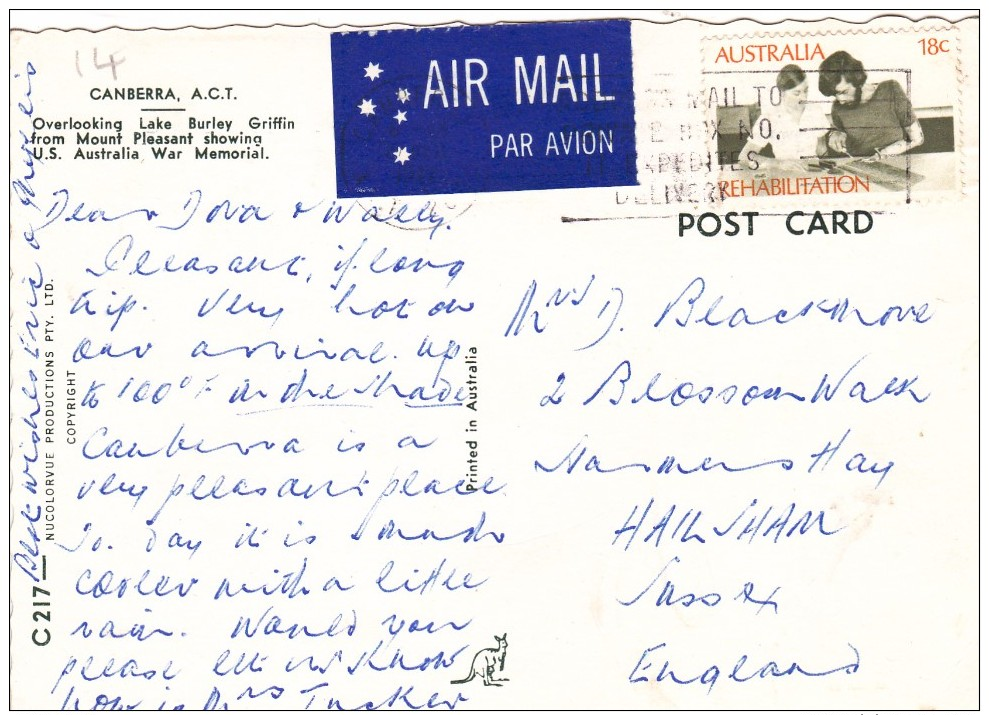 14
CANBERRA, A.C.T.
Overlooking Lake Burley Griffin
from Mount Pleasant showing
U.S. Australia War Memorial.
AIR MAIL
PAR AVION
AUSTRALIA 18c
REHABILITATION
MAIL TO
BOX NO.
EXPEDITES
DELIVERY
POST CARD
Dear Dora & Wally.
Pleasant, if long
trip. Very hot on
our arrival. up
to 100°F in the shade
Canberra is a
very pleasant place.
To. day it is much
cooler with a little
rain. Would you
please let us know
how is Mrs Tucker
Best wishes Eric &
Mrs D. Blackmore
2 Blossom Walk
Marmers Hay
HAILSHAM
Sussex
England
C217
NUCOLORVUE PRODUCTIONS PTY. LTD.
COPYRIGHT
Printed in Australia